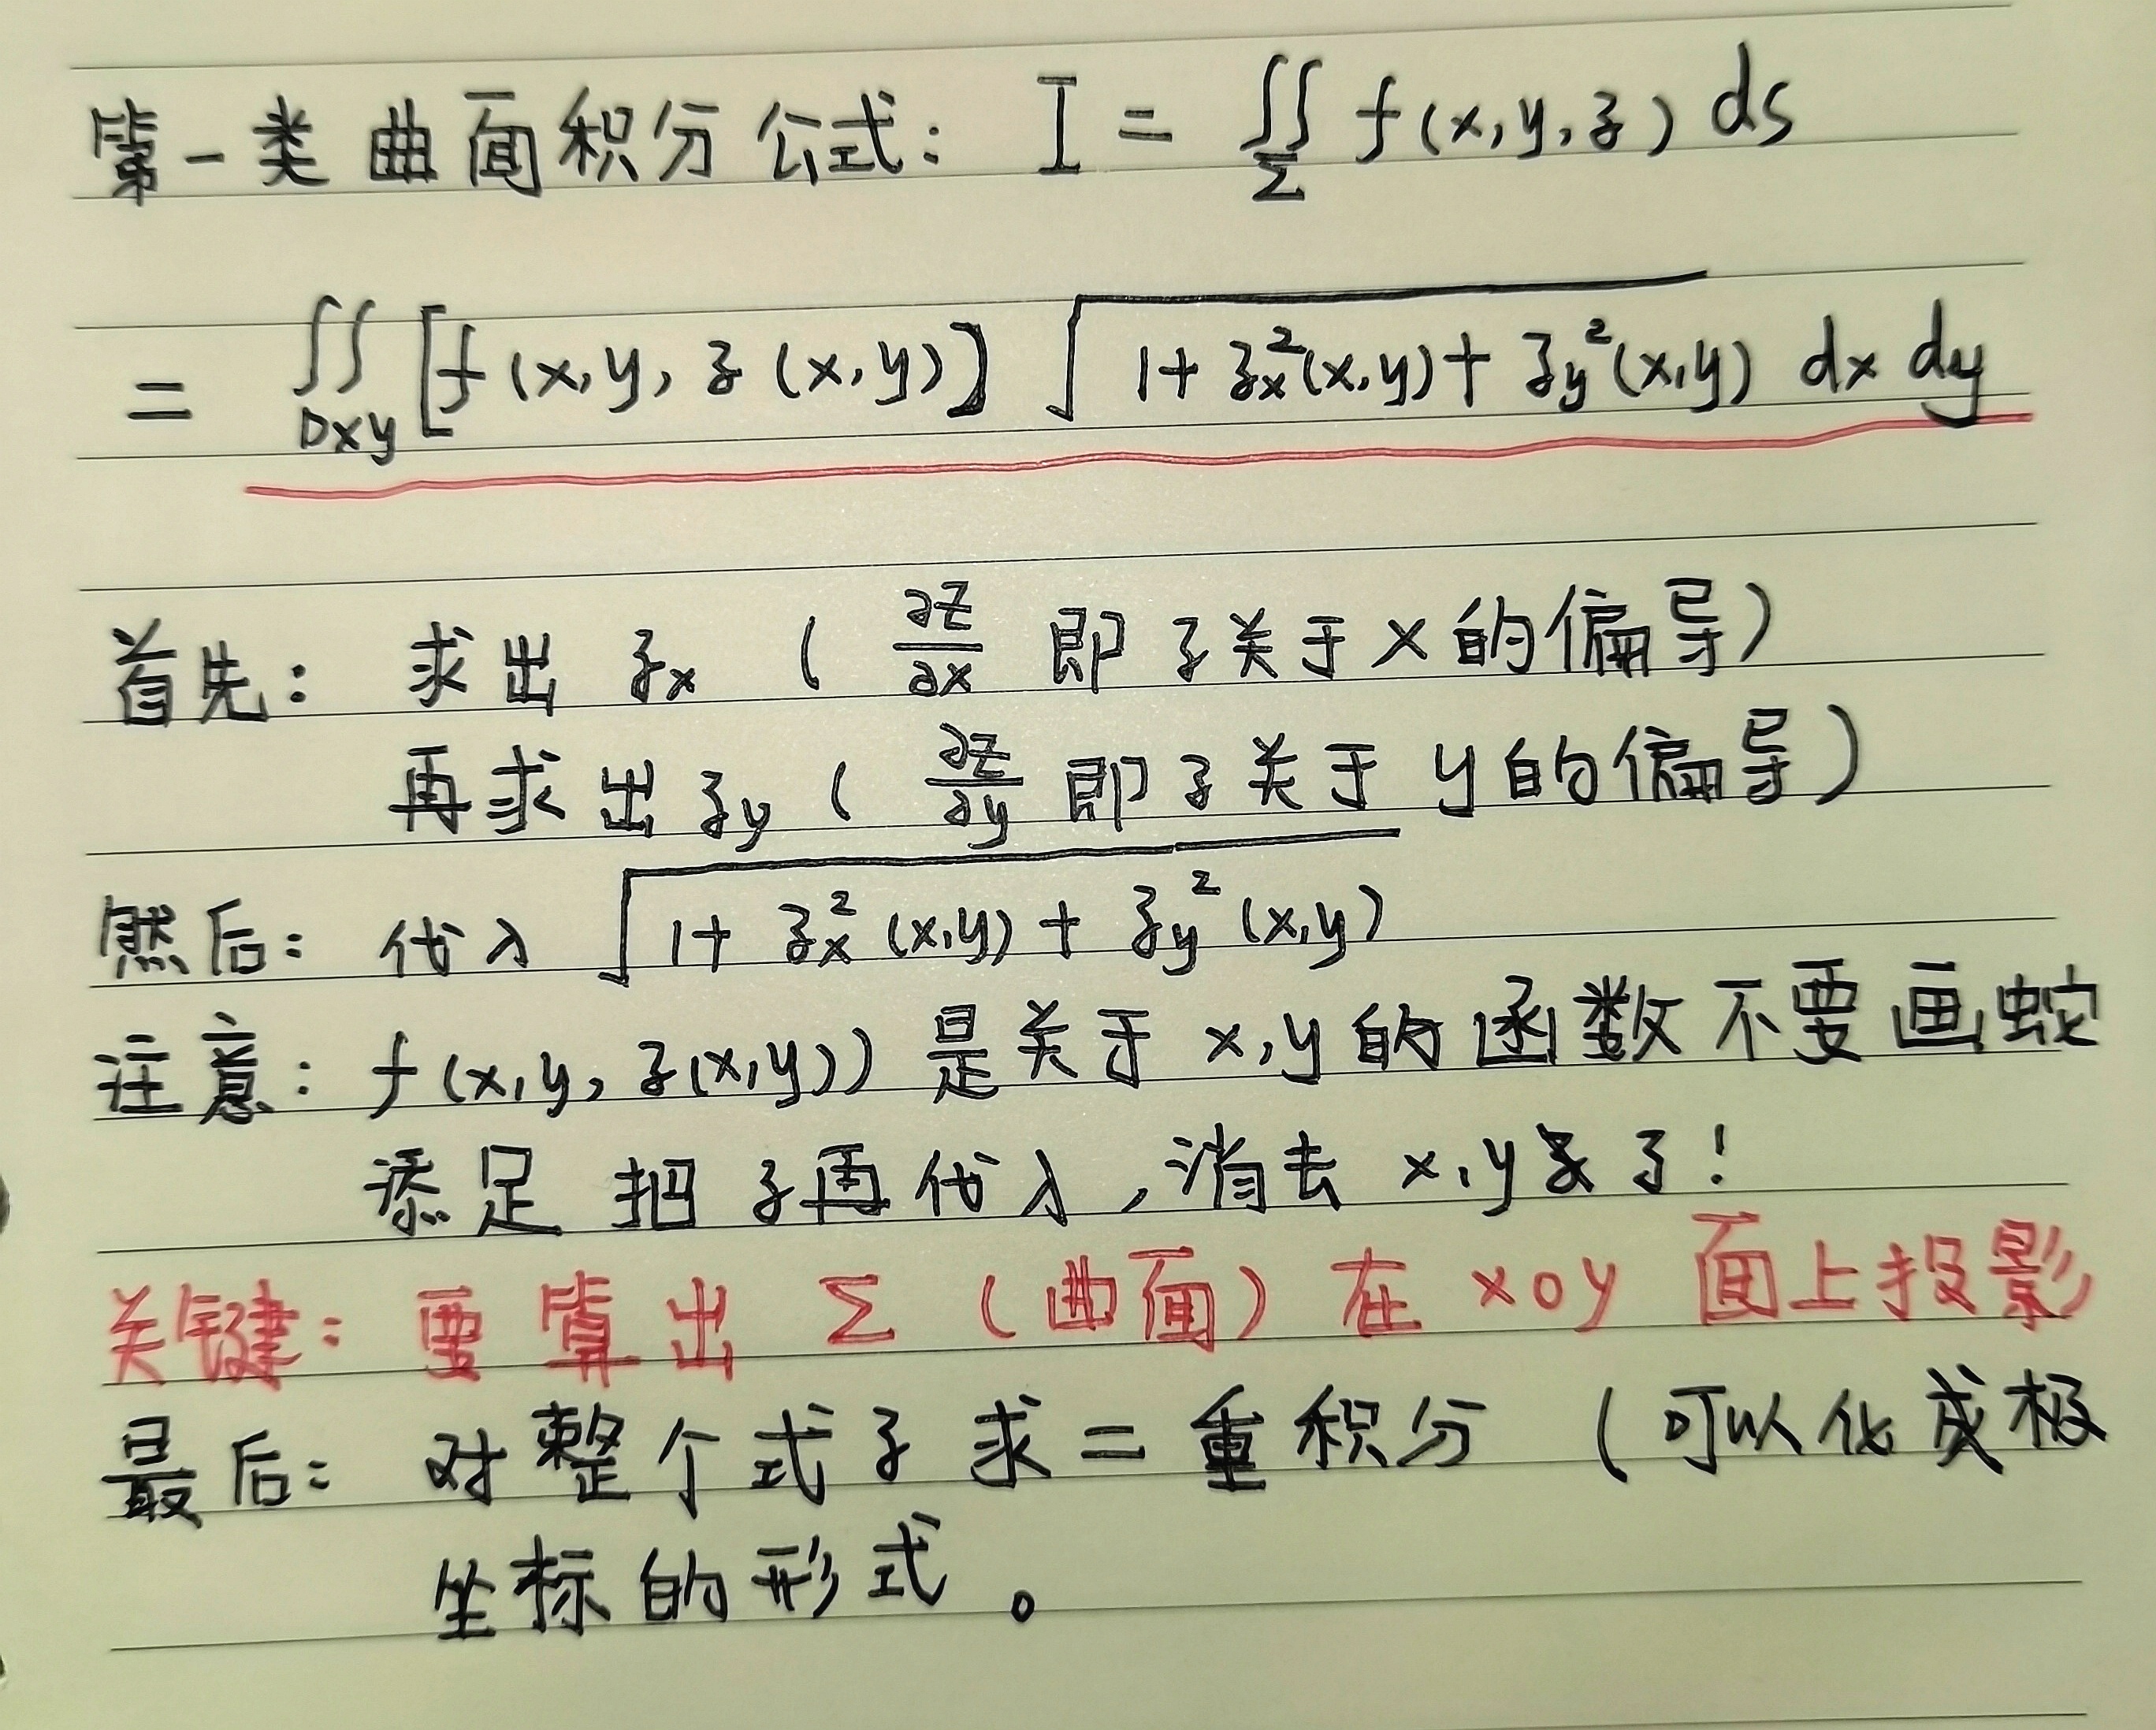 第一类曲面积分公式: I = ∬_Σ f(x,y,z) ds
= ∬_Dxy [f(x,y,z(x,y)] √(1+z_x²(x,y)+z_y²(x,y)) dx dy
首先: 求出 z_x ( ∂z/∂x 即z关于x的偏导)
再求出z_y ( ∂z/∂y 即z关于y的偏导)
然后: 代入 √(1+z_x²(x,y)+z_y²(x,y))
注意: f(x,y,z(x,y)) 是关于x,y的函数不要画蛇
添足 把z再代入,消去x,y了!
关键: 要算出 Σ (曲面) 在 xoy 面上投影
最后: 对整个式子求二重积分 (可以化成极
坐标的形式。